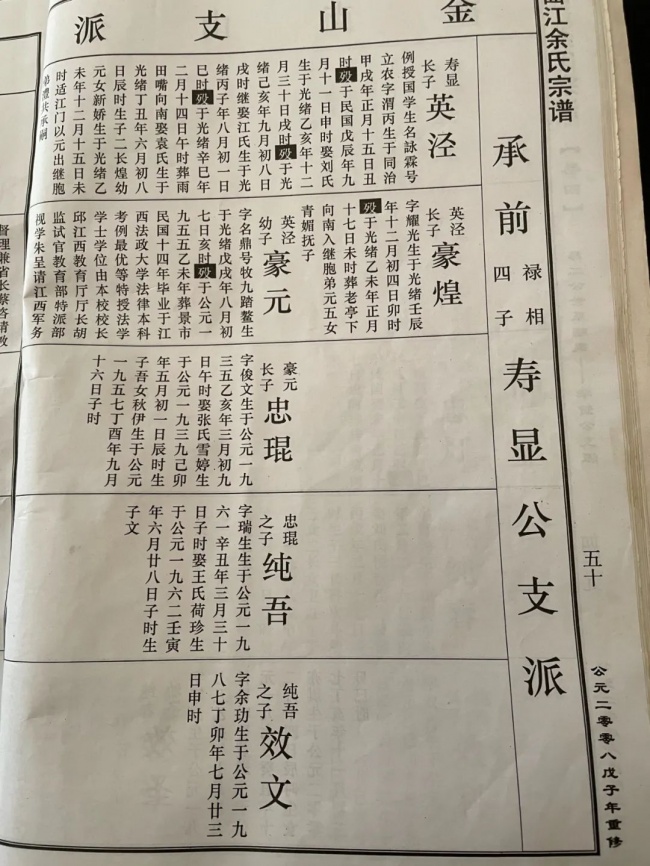 金山支派
曲江余氏宗谱
五十
公元二零零八戊子年重修
承前禄相四子寿显公支派
寿显长子
英泾
例授国学生名詠霖号
立农字渭丙生于同治
甲戌年正月十五日丑
时殁于民国戊辰年九
月十一日申时娶刘氏
生于光绪乙亥年十二
月三十日戌时殁于光
绪己亥年九月初八日
戌时继娶江氏生于光
绪丙子年八月初一日
巳时殁于光绪辛巳年
二月十四日午时葬雨
田嘴向南娶袁氏生于
光绪丁丑年六月初八
日辰时生子二长煌幼
元女新娇生于光绪乙
未年十二月十五日未
时适江门以元出继胞
弟豊共承嗣
英泾长子
豪煌
字耀光生于光绪壬辰
年十二月初四日卯时
殁于光绪乙未年正月
十七日未时葬老亭下
向南入继胞弟元五女
青媚抚子
英泾幼子
豪元
字名鼎号牧九踏鳌生
于光绪戊戌年八月初
七日亥时殁于公元一
九五五乙未年葬景市
民国十四年毕业于江
西法政大学法律本科
考例最优等特授法学
学士学位由本校校长
邱江西教育厅厅长胡
监试官教育部特派部
视学朱呈请江西军务
督理兼省长蔡咨请教
豪元长子
忠琨
字俊文生于公元一九
三五乙亥年三月初九
日午时娶张氏雪婷生
于公元一九三九己卯
年五月初一日辰时生
子吾女秋伊生于公元
一九五七丁酉年九月
十六日子时
忠琨之子
纯吾
字瑞生生于公元一九
六一辛丑年三月三十
日子时娶王氏荷珍生
于公元一九六二壬寅
年六月廿八日子时生
子文
纯吾之子
效文
字余玏生于公元一九
八七丁卯年七月廿三
日申时